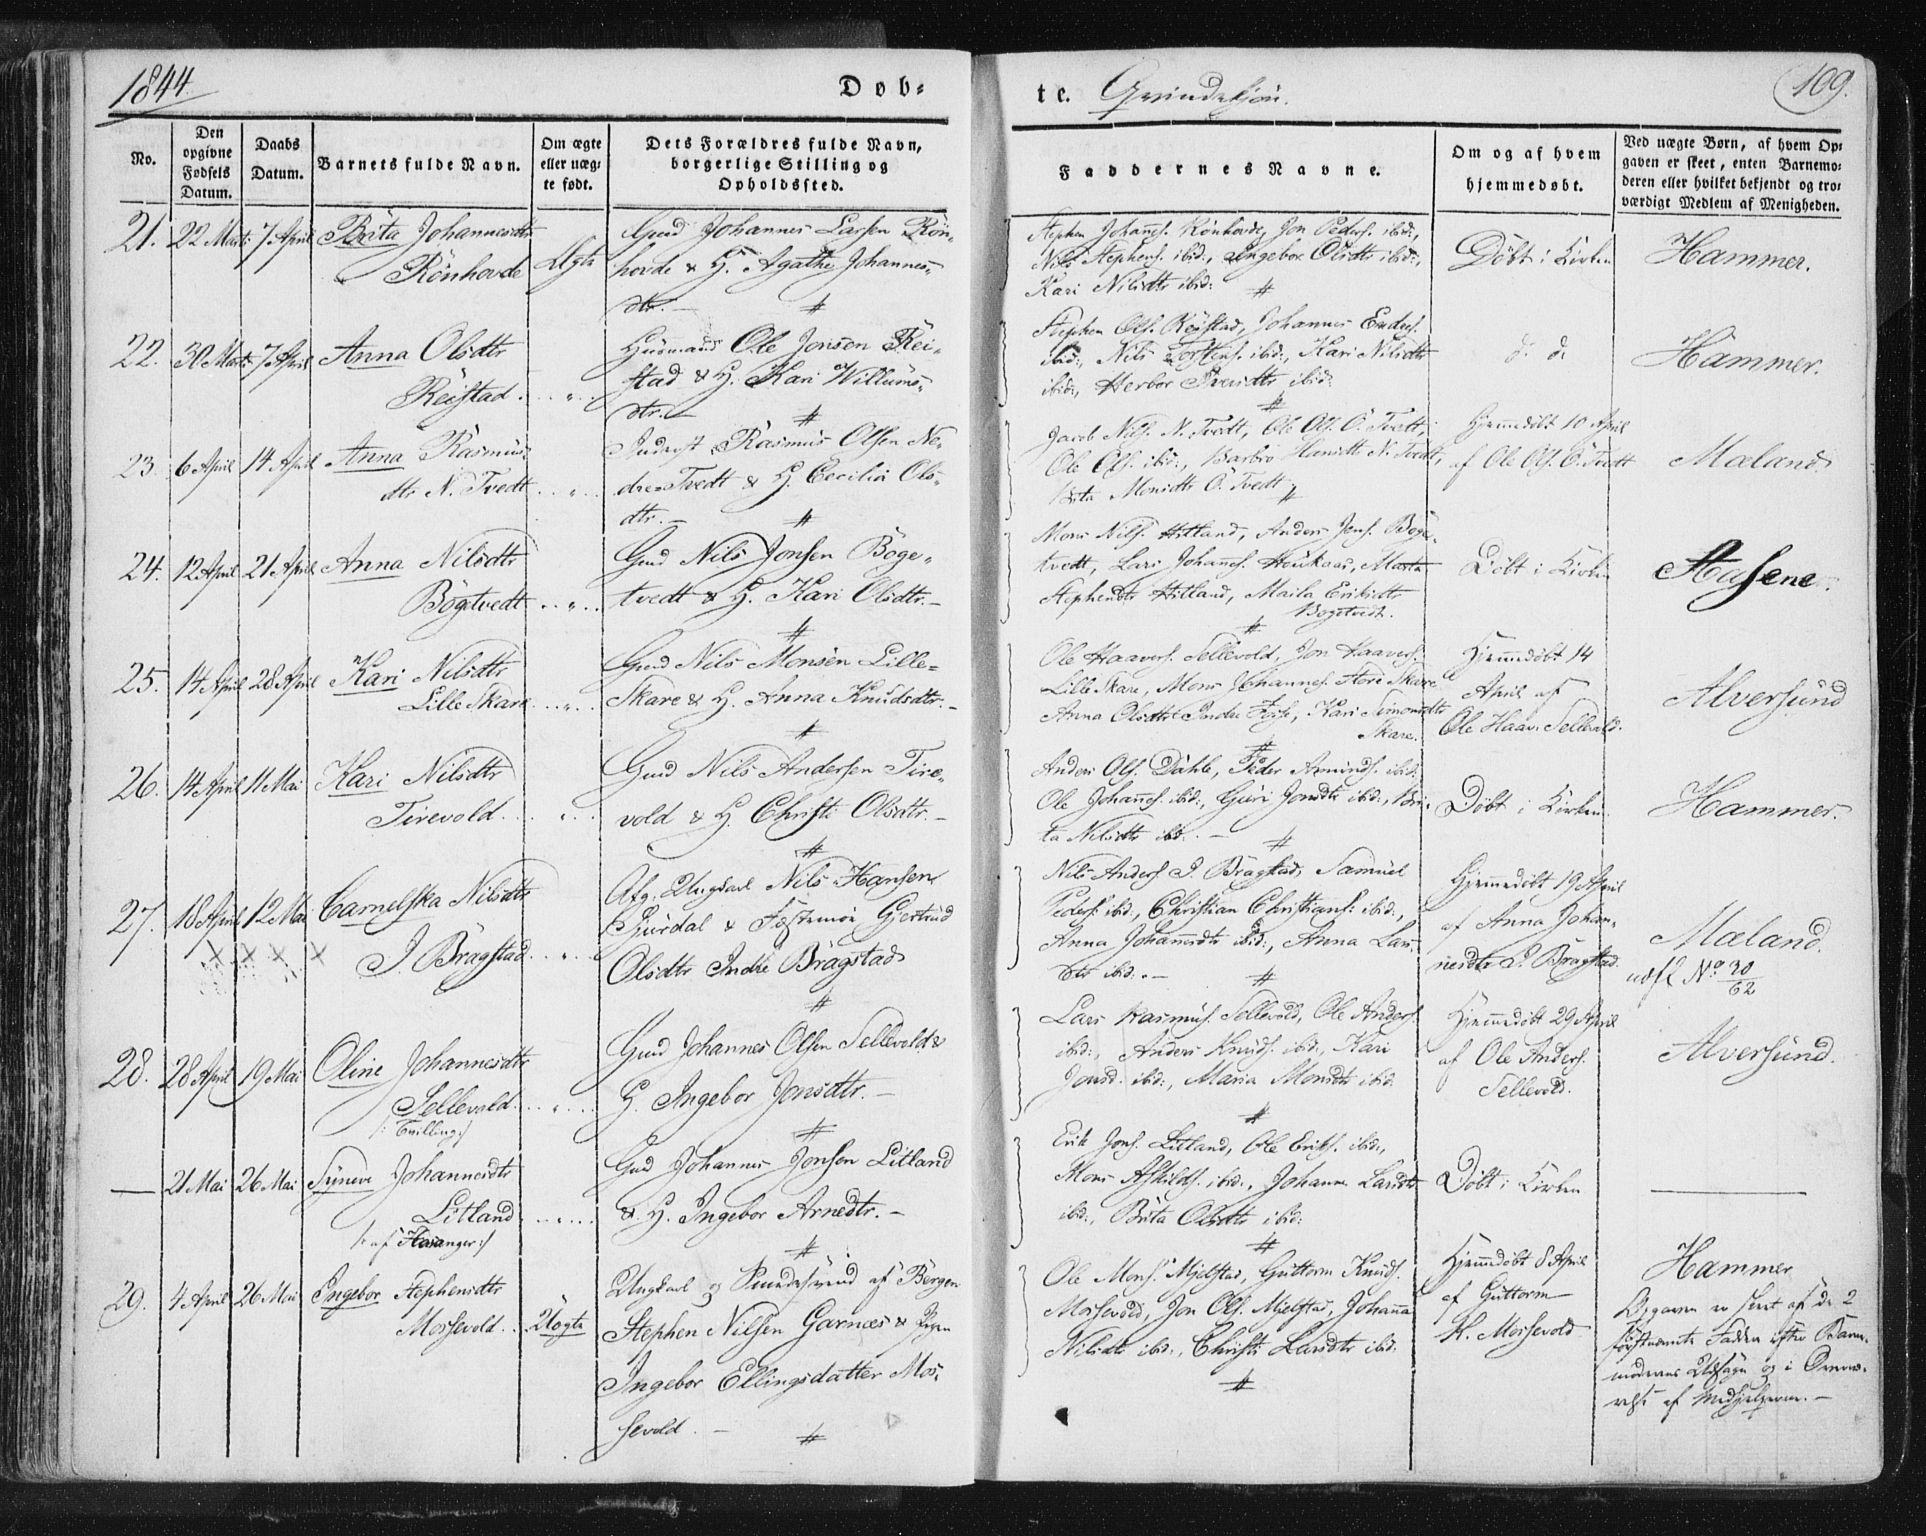 1844.
Døb-
te. Qvindekjøn.
109.
No.
Den opgivne Fødsels Datum.
Daabs Datum.
Barnets fulde Navn.
Om ægte eller uæg-te født.
Dets Forældres fulde Navn, borgerlige Stilling og Opholdssted.
Faddernes Navne.
Om og af hvem hjemmedøbt.
Ved uægte Børn, af hvem Op-gaven er skeet, enten Barnemo-deren eller hvilket bekjendt og tro-værdigt Medlem af Menigheden.
21. 22 Marts 7 April Brita Johannesdtr
Rönhovde
Ægte
Gmd Johannes Larsen Rön-
hovde & H. Agathe Johannes-
dtr. —
Stephen Johans. Rönhovde, Jon Peders. ibid:,
Nils Stephens. ibid:, Ingebor Olsdtr ibid:,
Kari Nilsdtr ibid:
Döbt i Kirken
Hammer.
22. 30 Marts 7 April Anna Olsdtr
Reistad
Huusmand Ole Jonsen Rei-
stad & H. Kari Willums-
dtr. —
Stephen Ols. Reistad, Johannes Enders.
ibid:, Nils Torstens. ibid:, Kari Nilsdtr
ibid:, Herbor Iversdtr ibid:
d. d.
Hammer.
23. 6 April 14 April Anna Rasmus-
dtr N. Tvedt
Inderst Rasmus Olsen Ne-
dre Tvedt & H. Cecilia Ols-
dtr. —
Jacob Nils. N. Tvedt, Ole Ols. Ö. Tvedt,
Ole Ols. ibid:, Barbro Hansdtr N. Tvedt,
Brita Monsdtr Ö. Tvedt
Hjemmedöbt 10 April
af Ole Ols. Ö. Tvedt
Mæland
24. 12 April 21 April Anna Nilsdtr
Bögetvedt
Gmd Nils Jonsen Böge-
tvedt & H. Kari Olsdtr. —
Mons Nils. Hitland, Anders Jens. Böge-
tvedt, Lars Johans. Houkaas, Marta
Stephensdtr Hitland, Marta Eriksdtr
Bögetvedt.
Döbt i Kirken
25. 14 April 28 April Kari Nilsdtr
Lille Skare
Gmd Nils Monsen Lille-
Skare & H. Anna Knudsdtr. —
Ole Haavers. Sellevold, Jon Haavers.
Lille Skare, Mons Johannes. Store Skare
Anna Olsdtr Indre, Kari Simonsdtr
Skare.
Hjemmedöbt 14
April af
Ole Haav. Sellevold.
Alversund
26. 14 April 11 Mai Kari Nilsdtr
Tirevold
Gmd Nils Andersen Tire-
vold & H. Christi Olsdtr. —
Anders Ols. Dahle, Peder Amunds. ibid:
Ole Johans. ibid:, Guri Jonsdtr ibid:, Bri-
ta Nilsdtr ibid. —
Döbt i Kirken
Hammer.
27. 18 April 12 Mai Carnelska Nilsdtr
I. Bragstad
Afg. Ungkarl Nils Hansen
Gurdal & Fæstemöe Gjertrud
Olsdtr Indre Bragstad
Nils Anders. I. Bragstad, Samuel
Peders. ibid:, Christian Christians: ibid:,
Anna Johannesdtr ibid:, Anna Lars-
dtr ibid: —
Hjemmedöbt 19 April
af Anna Johan-
nesdtr I. Bragstad.
Mæland.
udfl No 30/62
28. 28 April 19 Mai Oline Johannesdtr
Sellevold
/: Tvilling :/
Gmd Johannes Olsen Sellevold &
H. Ingebor Jonsdtr. —
Lars Rasmus. Sellevold, Ole Anders.
ibid:, Anders Knuds. ibid:, Kari
Jonsd. ibid:, Maria Monsdtr ibid:
Hjemmedöbt 29 April
af Ole Anders.
Sellevold.
Alversund.
— 21 Mai 26 Mai Syneve Johannesdtr
Litland
/: af Hosanger :/
Gmd Johannes Jonsen Litland
& H. Ingebor Arnedtr. —
Erik Jons. Litland, Ole Eriks. ibid:,
Mons Askilds. ibid:, Johanne Larsdtr
ibid:, Brita Olsdtr ibid:
Döbt i Kirken
29. 4 April 26 Mai Ingebor Stephensdtr
Mosevold
Uægte
Ungkarl og af Bergen
Stephen Nilsen Garnæs & Pigen
Ingebor Ellingsdatter Mos-
sevold. —
Ole Mons. Mjelstad, Guttorm Knuds.
Mossevold, Jon Ols. Mjelstad, Johanna
Nilsdtr ibid:, Christi Larsdtr ibid:
Hjemmedöbt 8 April
af Guttorm
K. Mossevold
Hammer
Opgaven er skeet af de 2
förstnævnte Faddere efter Barne-
moderens Udsagn og i Overvæ-
relse af Medhjelperen. —